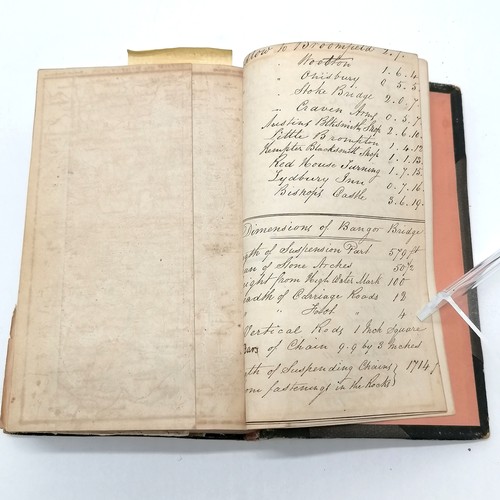 low to Broomfield 2.
" Wootton 1. 6. 4.
" Onibury 0. 5. 5.
" Stoke Bridge 2. 0. 7.
" Craven Arms 0. 5. 7.
Austins Blksmith Shop 2. 6. 10.
Little Brompton 1. 4. 12.
Kempter Blacksmith Shop 1. 1. 13.
Red House Turning 1. 7. 15.
Lydbury Inn 0. 7. 16.
Bishops Castle 3. 6. 19.
Dimensions of Bangor Bridge
gth of Suspension Part 579 ft
an of Stone Arches 50 ½
eight from High Water Mark 100
eadth of Carriage Roads 12
" Foot " 4
Vertical Rods 1 Inch Square
Bars of Chain 9.9 by 3 Inches
gth of Suspending Chains 1714 f
om fastenings in the Rocks